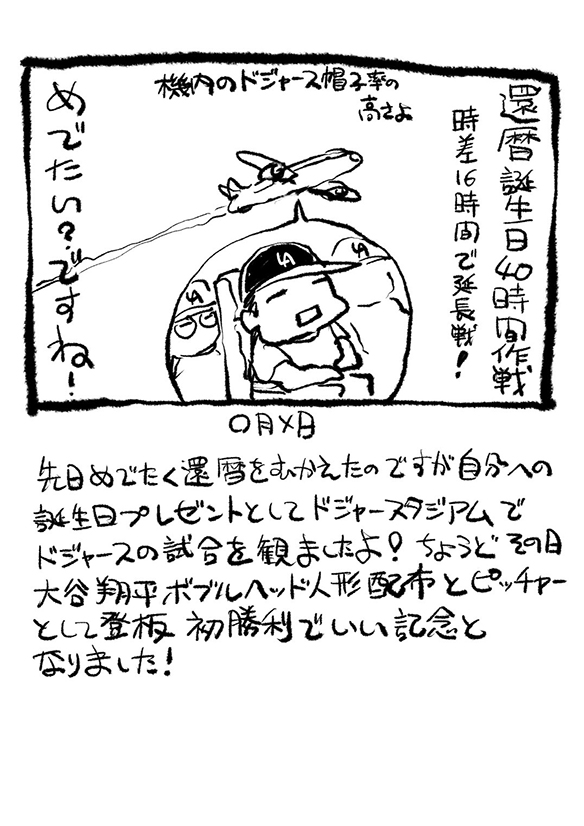 還暦誕生日40時間作戦
時差16時間で延長戦!
機内のドジャース帽子率の
高さよ
LA
LA
LA
めでたい?ですね!
〇月×日
先日めでたく還暦をむかえたのですが自分への
誕生日プレゼントとしてドジャースタジアムで
ドジャースの試合を観ましたよ!ちょうどその日
大谷翔平ボブルヘッド人形配布とピッチャー
として登板初勝利でいい記念と
なりました!